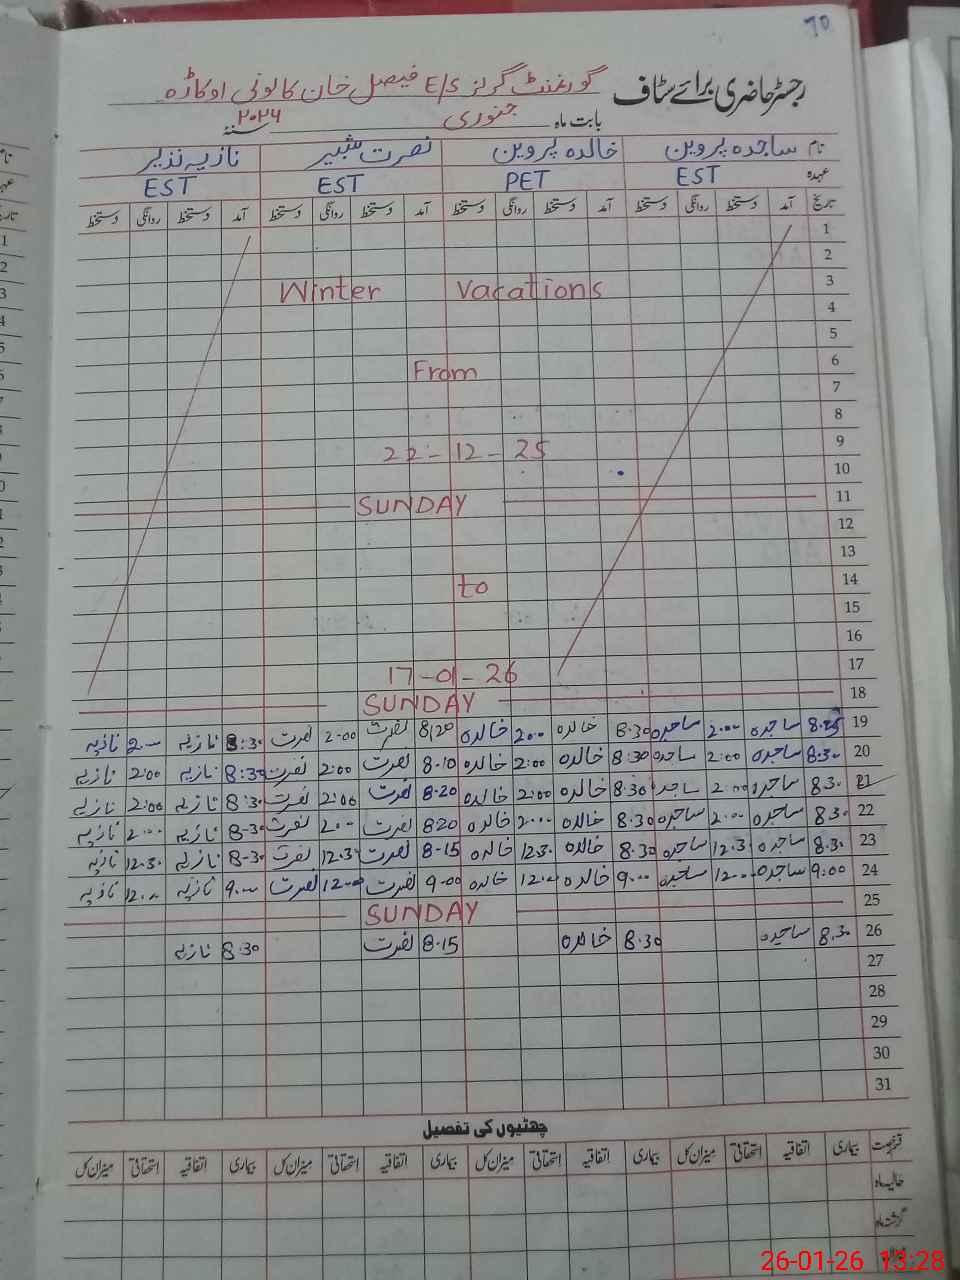 70
رجسٹر حاضری برائے سٹاف گورنمنٹ گرلز E/S فیصل خان کالونی اوکاڑہ
بابت ماہ جنوری سنۂ ۲۰۲۶
نام ساجدہ پروین خالدہ پروین نصرت شبیر نازیہ نذیر
عہدہ EST PET EST EST
تاریخ آمد دستخط روانگی دستخط آمد دستخط روانگی دستخط آمد دستخط روانگی دستخط آمد دستخط روانگی دستخط
1
2
3 Winter Vacations
4
5
6 From
7
8
9 22-12-25
10
11 SUNDAY
12
13
14 to
15
16
17 17-01-26
18 SUNDAY
19 8.25 ساجدہ 2.00 ساجدہ 8.30 خالدہ 2.00 خالدہ 8.20 نصرت 2.00 نصرت 8:30 نازیہ 2.00 نازیہ
20 8.30 ساجدہ 2:00 ساجدہ 8.30 خالدہ 2:00 خالدہ 8.10 نصرت 2:00 نصرت 8:30 نازیہ 2:00 نازیہ
21 8.30 ساجدہ 2.00 ساجدہ 8.30 خالدہ 2:00 خالدہ 8.20 نصرت 2:00 نصرت 8:30 نازیہ 2:00 نازیہ
22 8.30 ساجدہ 2.00 ساجدہ 8.30 خالدہ 2.00 خالدہ 8.20 نصرت 2.00 نصرت 8-30 نازیہ 2.00 نازیہ
23 8.30 ساجدہ 12.3 ساجدہ 8.30 خالدہ 12.30 خالدہ 8-15 نصرت 12.3 نصرت 8-30 نازیہ 12.30 نازیہ
24 9:00 ساجدہ 12.00 ساجدہ 9.00 خالدہ 12.00 خالدہ 9.00 نصرت 12.00 نصرت 9.00 نازیہ 12.00 نازیہ
25 SUNDAY
26 8.30 ساجدہ 8.30 خالدہ 8.15 نصرت 8.30 نازیہ
27
28
29
30
31
چھٹیوں کی تفصیل
قسم رخصت بیماری اتفاقیہ استحقاقی میزان کل بیماری اتفاقیہ استحقاقی میزان کل بیماری اتفاقیہ استحقاقی میزان کل بیماری اتفاقیہ استحقاقی میزان کل
حالیہ ماہ
گزشتہ ماہ
26-01-26 13:28